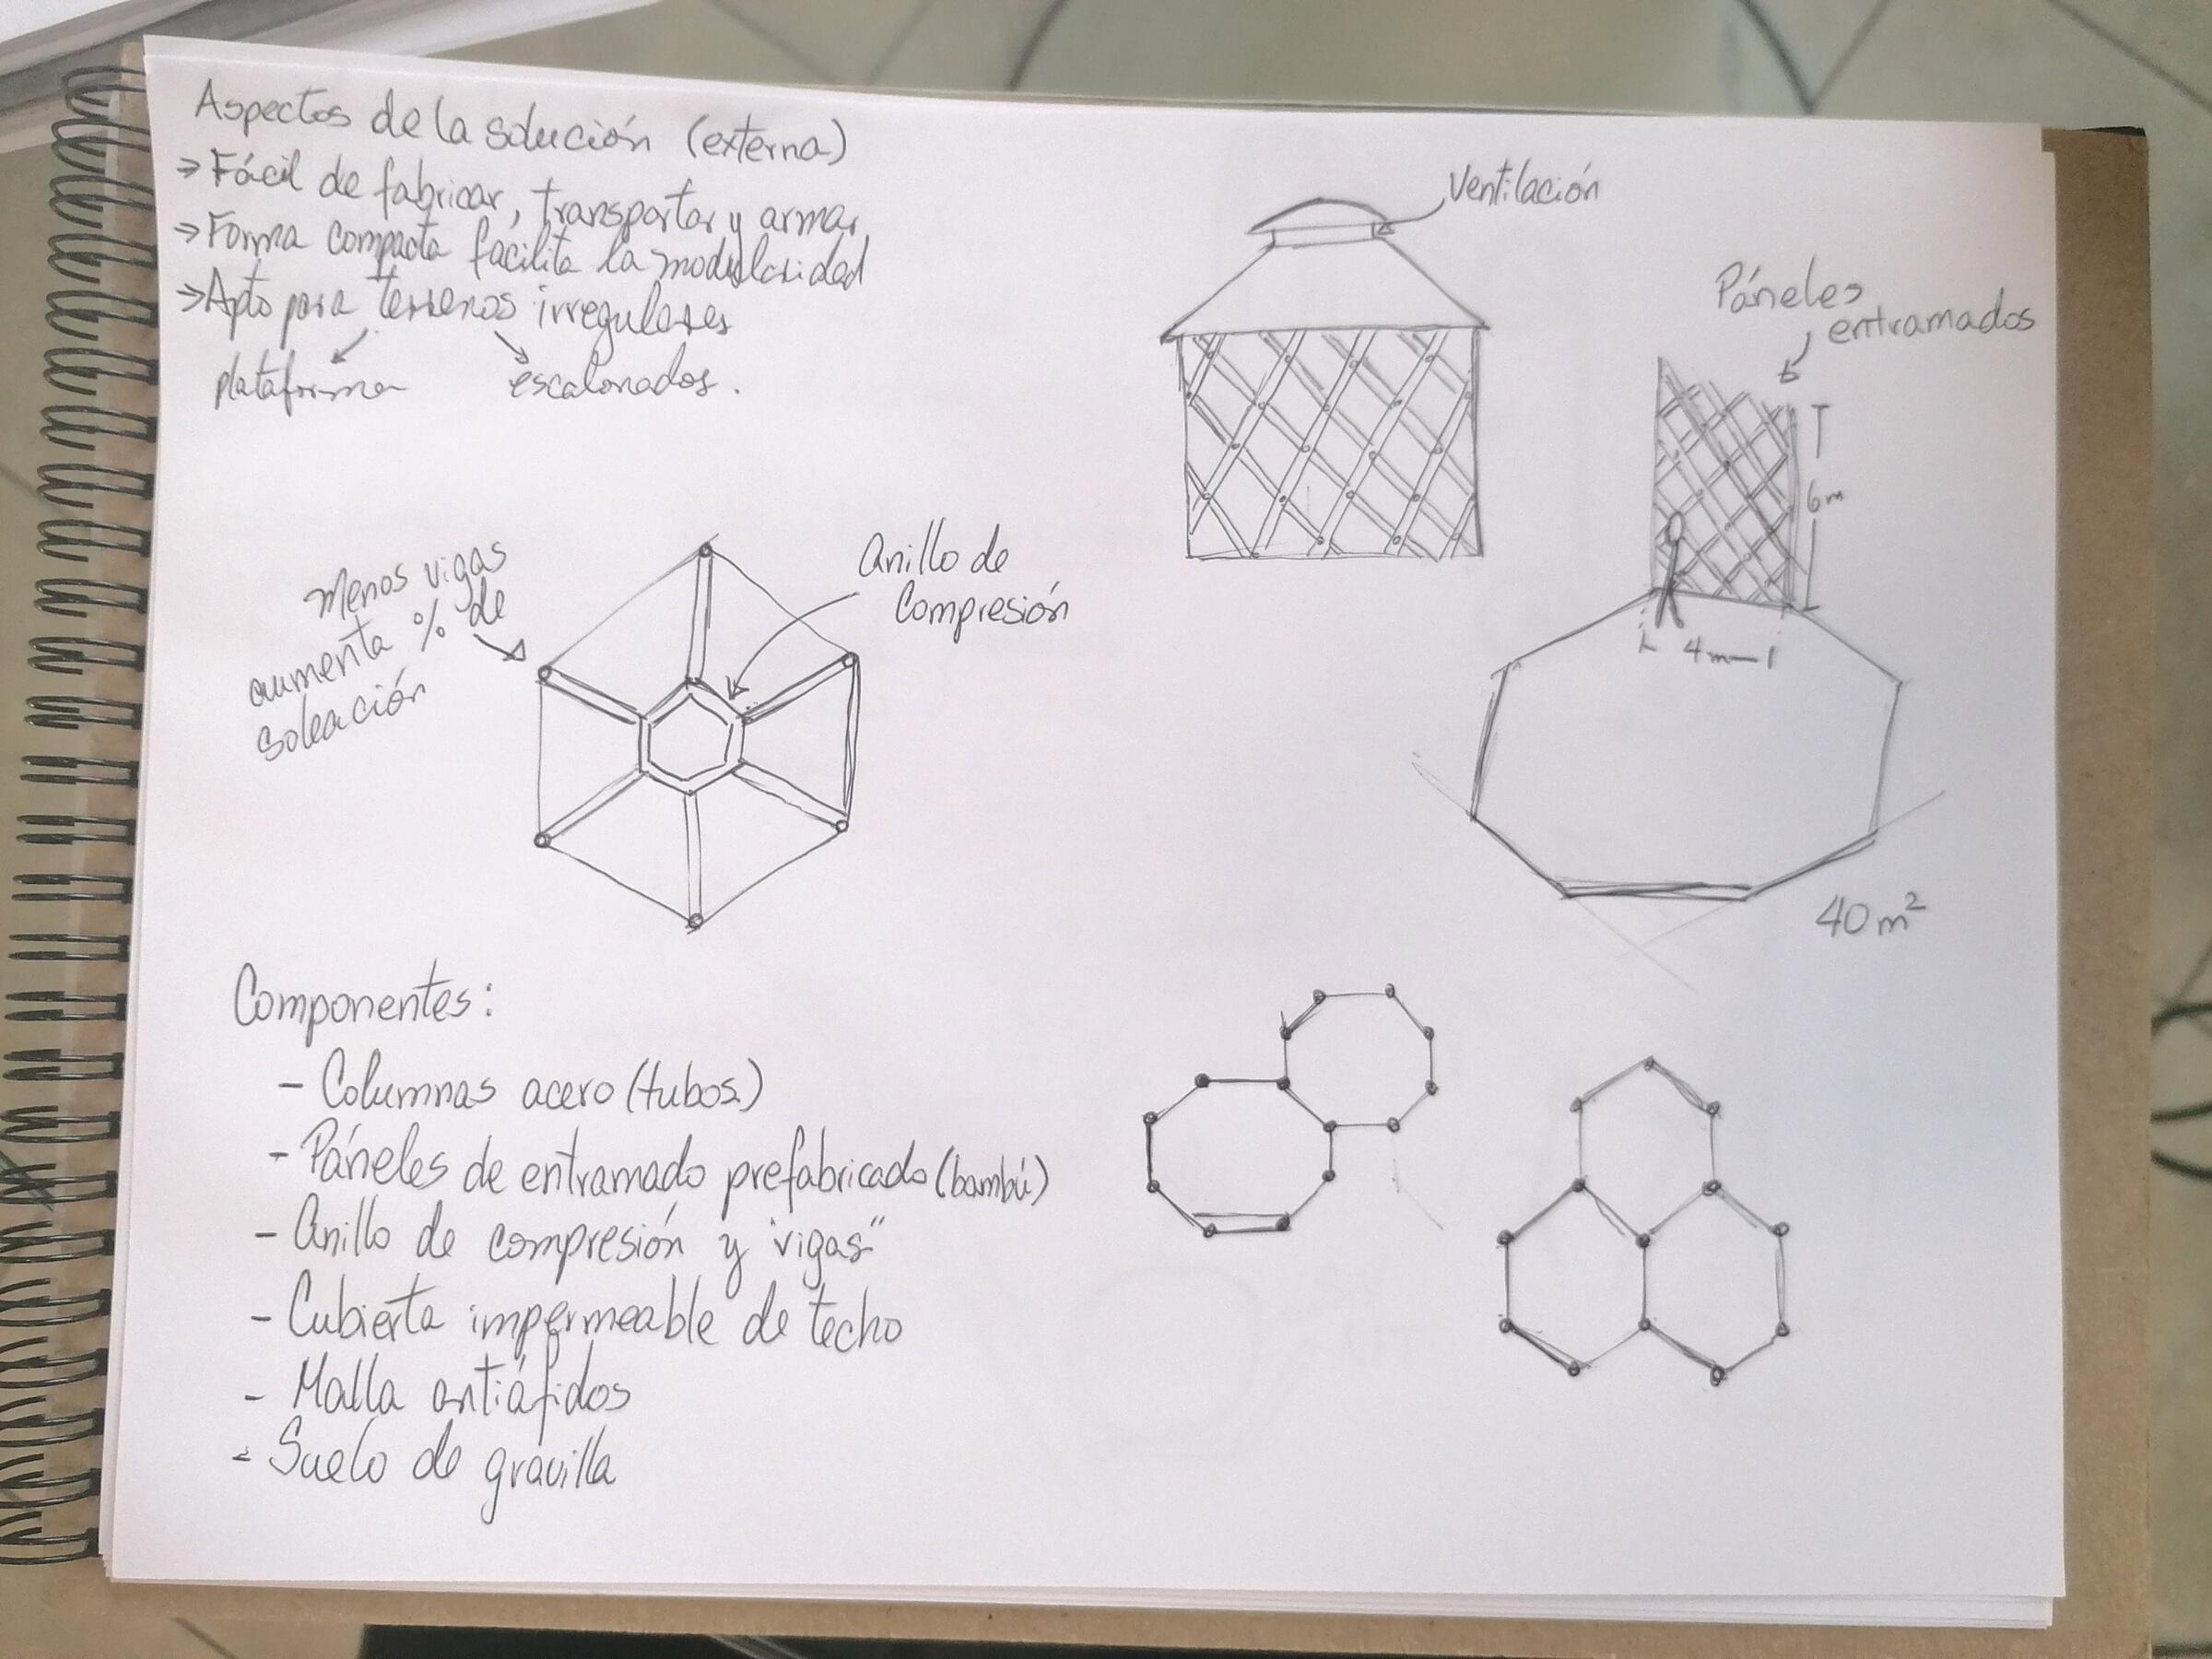 Aspectos de la solución (externa)
⇒ Fácil de fabricar, transportar y armar
⇒ Forma compacta facilita la modularidad
⇒ Apto para terrenos irregulares
plataforma
escalonados.
Ventilación
Páneles
entramados
6m
4m
40 m²
Menos vigas
aumenta % de
soleación
Anillo de
Compresión
Componentes:
- Columnas acero (tubos)
- Páneles de entramado prefabricado (bambú)
- Anillo de compresión y "vigas"
- Cubierta impermeable de techo
- Malla antiáfidos
- Suelo de gravilla